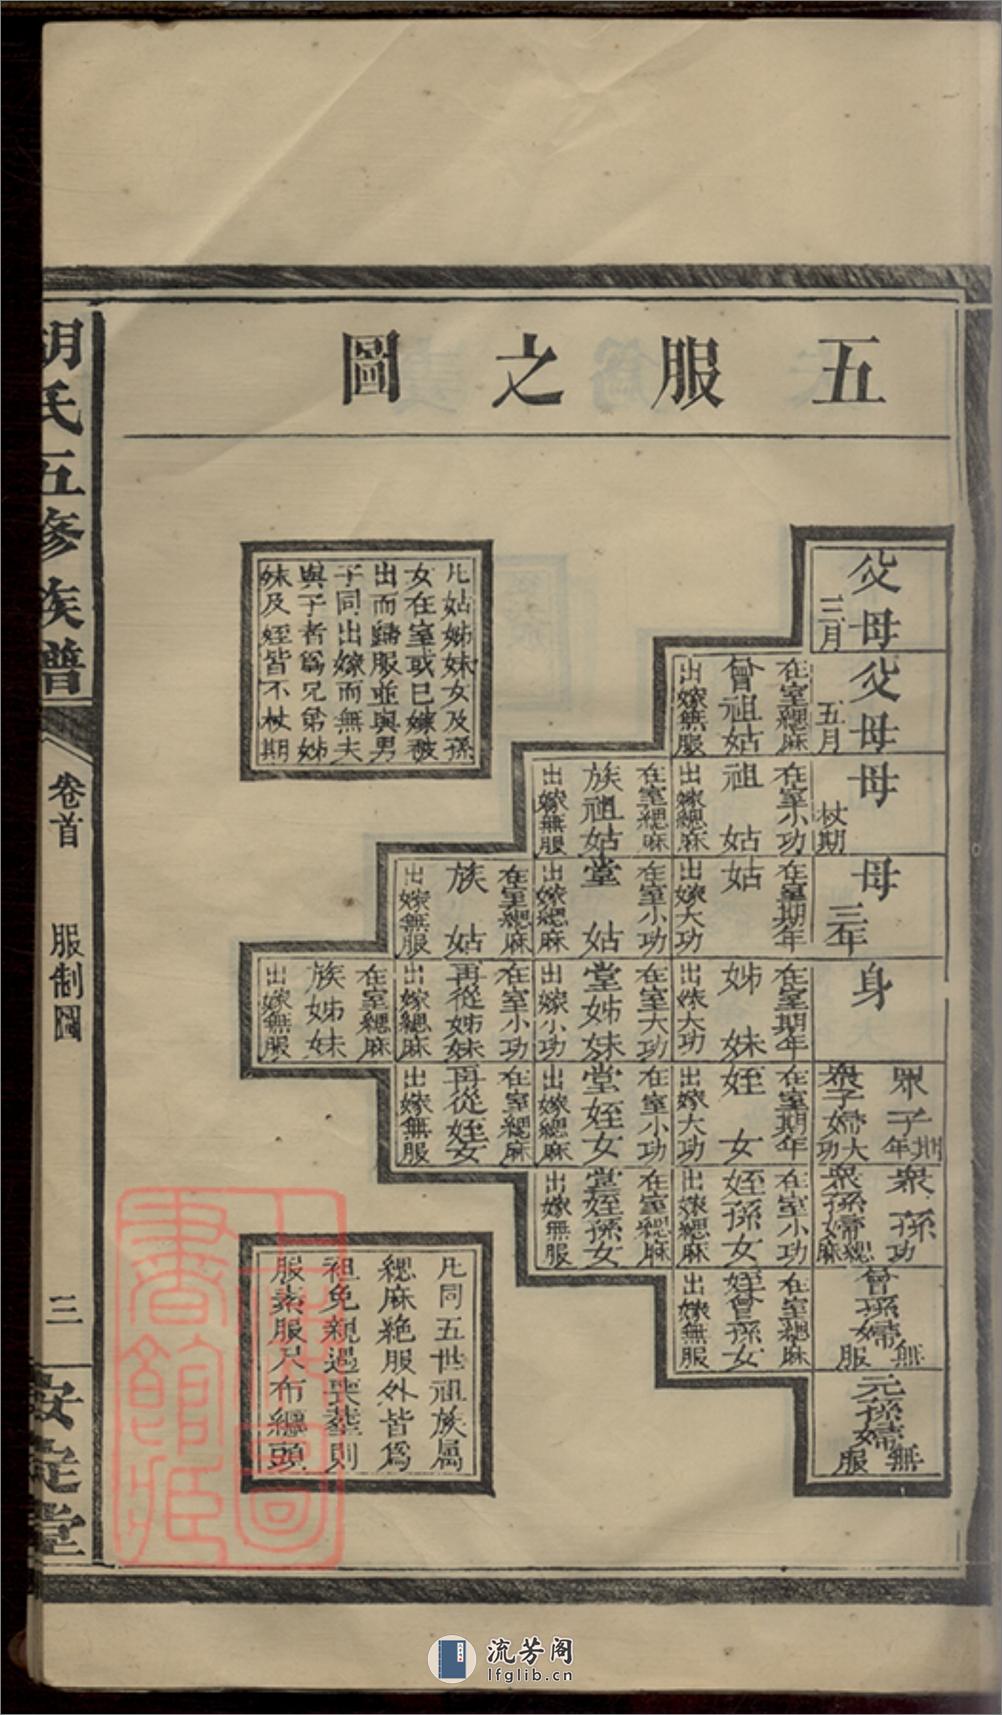 五服之圖
父母
三月
父母
五月
在室緦麻
曾祖姑
出嫁無服
母
杖期
在室小功
祖姑
出嫁緦麻
在室緦麻
族祖姑
出嫁無服
母
三年
在室期年
姑
出嫁大功
在室小功
堂姑
出嫁緦麻
在室緦麻
族姑
出嫁無服
身
在室期年
姊妹
出嫁大功
在室大功
堂姊妹
出嫁小功
在室小功
再從姊妹
出嫁緦麻
在室緦麻
族姊妹
出嫁無服
眾子
期年
衆子婦大功
在室期年
姪女
出嫁大功
在室小功
堂姪女
出嫁緦麻
在室緦麻
再從姪女
出嫁無服
衆孫
功
衆孫婦緦麻
在室小功
姪孫女
出嫁緦麻
在室緦麻
堂姪孫女
出嫁無服
曾孫婦無服
在室緦麻
姪曾孫女
出嫁無服
元孫婦無服
凡姑姊妹女及孫
女在室或已嫁被
出而歸服並與男
子同出嫁而無夫
與子者爲兄弟姊
妹及姪皆不杖期
凡同五世祖族属
緦麻絶服外皆爲
袒免親遇喪塟則
服素服尺布纏頭
胡氏五修族譜
卷首
服制圖
三
安定堂
上海圖書館藏
流芳阁
lfglib.cn